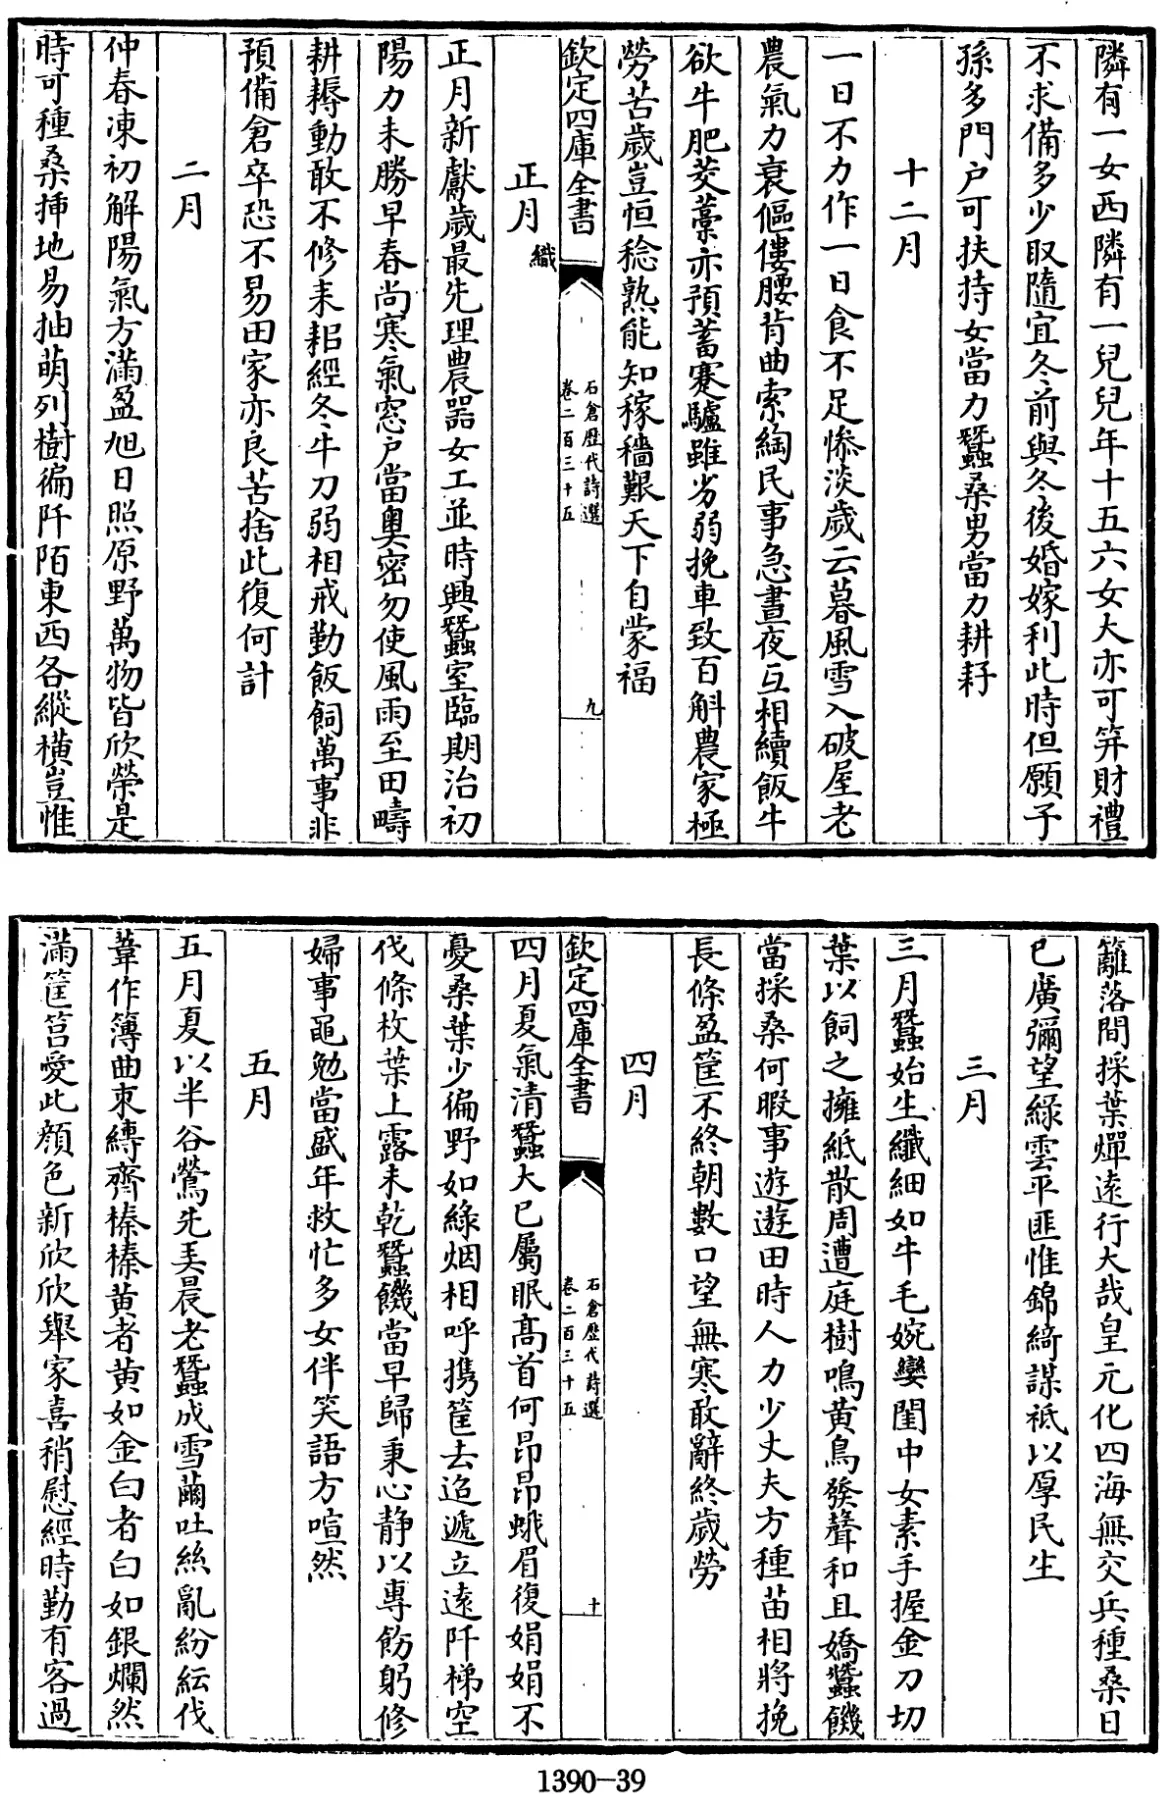 隣有一女西隣有一兒兒年十五六女大亦可笄財禮
不求備多少取隨宜冬前與冬後婚嫁利此時但願子
孫多門戶可扶持女當力蠶桑男當力耕耔
十二月
一日不力作一日食不足慘淡歲云暮風雪入破屋老
農氣力衰傴僂腰背曲索綯民事急晝夜互相續飯牛
欲牛肥茭藁亦預蓄蹇驢雖劣弱挽車致百斛農家極
勞苦歲豈恒稔熟能知稼穡艱天下自蒙福
欽定四庫全書
石倉歷代詩選
卷二百三十五
九
正月織
正月新獻歲最先理農器女工並時興蠶室臨期治初
陽力未勝早春尚寒氣窓戶當奧密勿使風雨至田疇
耕耨動敢不修耒耜經冬牛力弱相戒勤飯飼萬事非
預備倉卒恐不易田家亦良苦捨此復何計
二月
仲春凍初解陽氣方滿盈旭日照原野萬物皆欣榮是
時可種桑插地易抽萌列樹徧阡陌東西各縱橫豈惟
籬落間採葉燀遠行大哉皇元化四海無交兵種桑日
已廣彌望綠雲平匪惟錦綺謀祇以厚民生
三月
三月蠶始生纖細如牛毛婉孌閨中女素手握金刀切
葉以飼之擁紙散周遭庭樹鳴黃鳥發聲和且嬌蠶饑
當採桑何暇事遊遊田時人力少丈夫方種苗相將挽
長條盈筐不終朝數口望無寒敢辭終歲勞
四月
欽定四庫全書
石倉歷代詩選
卷二百三十五
十
四月夏氣清蠶大已屬眠高首何昂昂蛾眉復娟娟不
憂桑葉少徧野如綠烟相呼攜筐去迢遞立遠阡梯空
伐條枚葉上露未乾蠶饑當早歸秉心靜以專飭躬修
婦事黽勉當盛年救忙多女伴笑語方喧然
五月
五月夏以半谷鶯先弄晨老蠶成雪繭吐絲亂紛紜伐
葦作簿曲束縛齊榛榛黃者黃如金白者白如銀爛然
滿筐筥愛此顏色新欣欣舉家喜稍慰經時勤有客過
1390-39